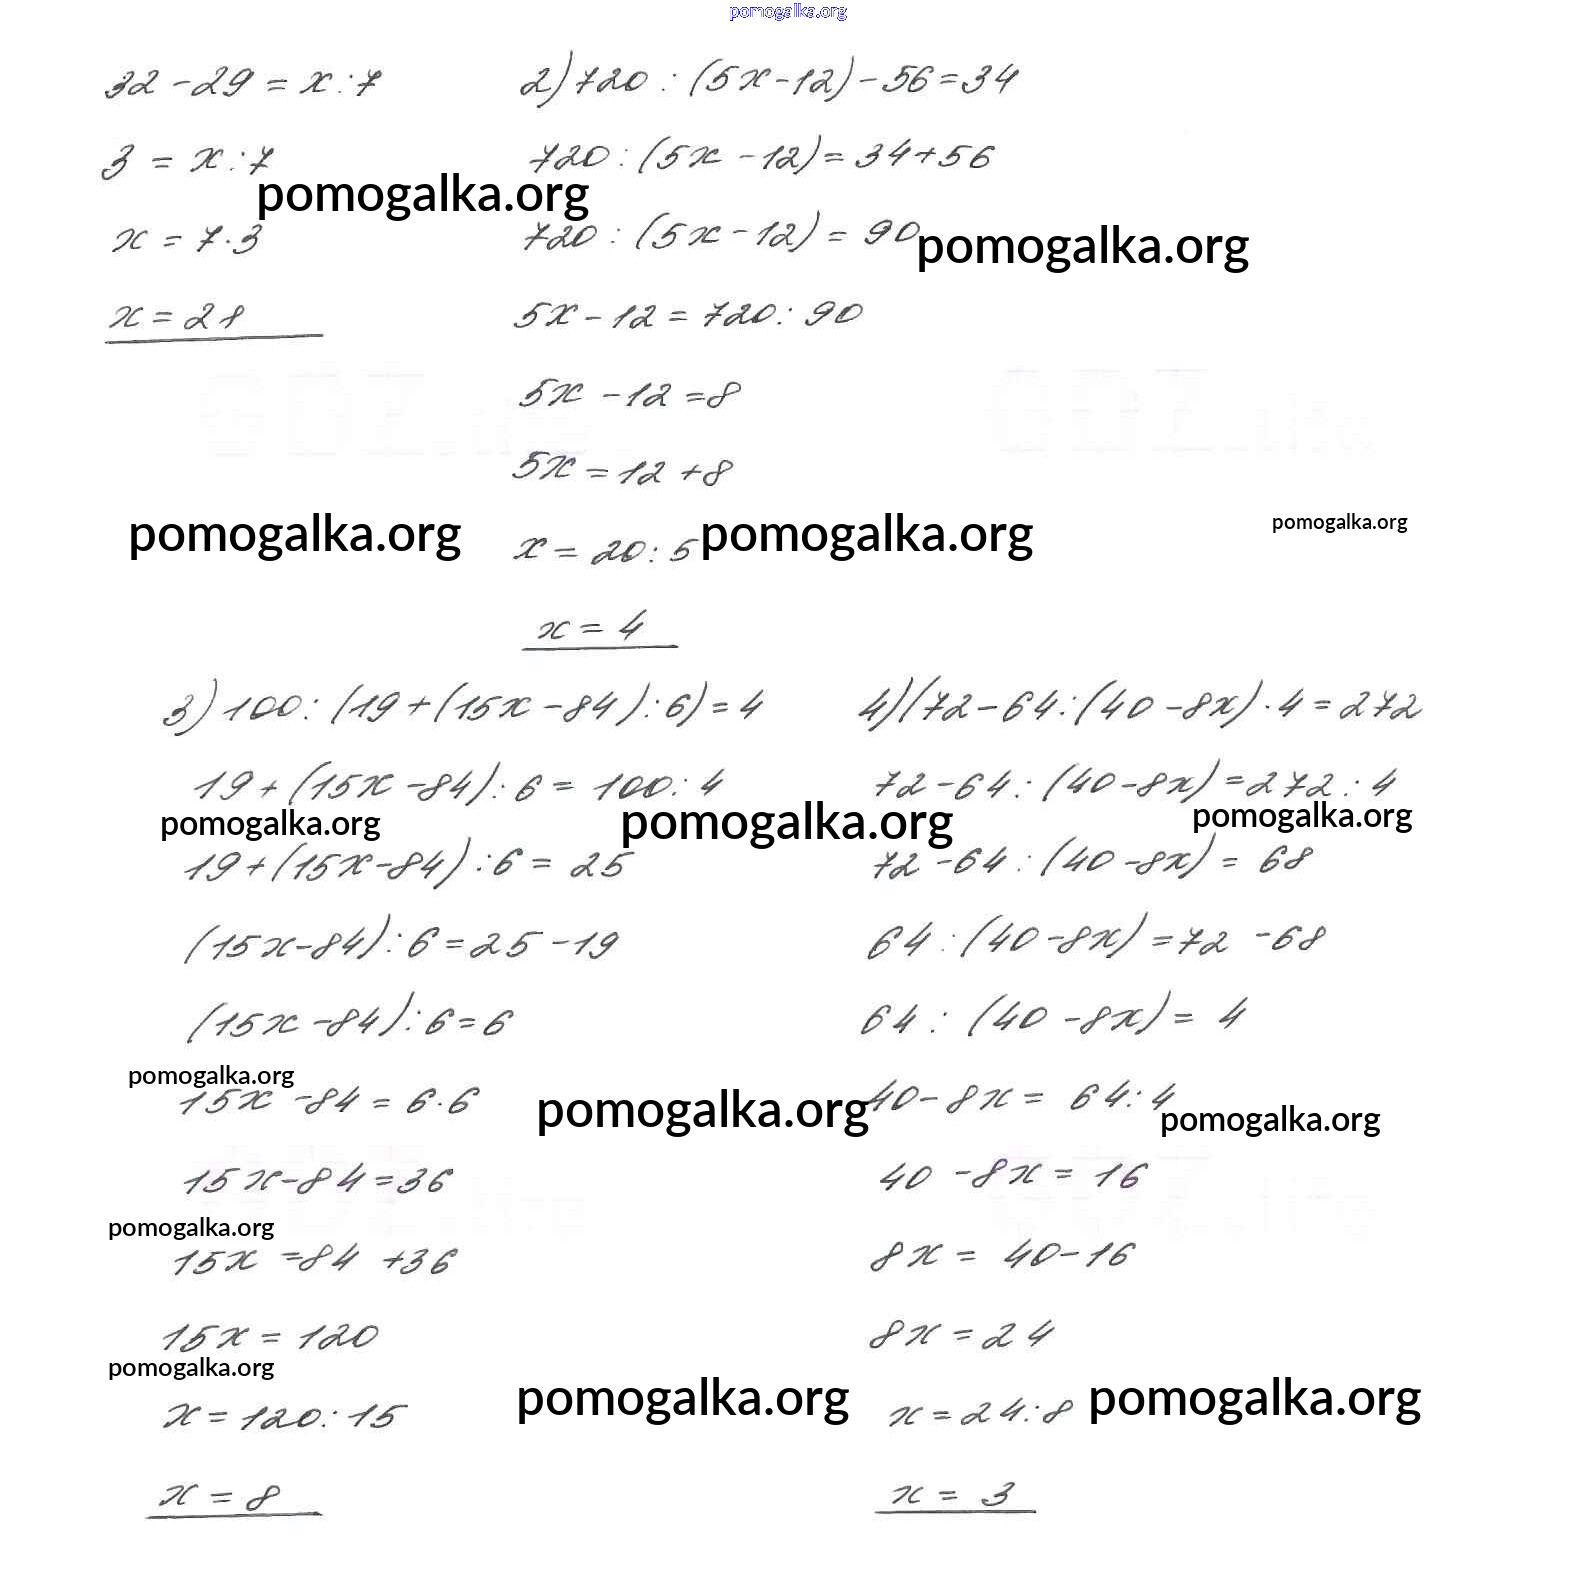 pomogalka.org
32 - 29 = x : 7
3 = x : 7
x = 7 · 3
x = 21
2) 720 : (5x - 12) - 56 = 34
720 : (5x - 12) = 34 + 56
720 : (5x - 12) = 90
5x - 12 = 720 : 90
5x - 12 = 8
5x = 12 + 8
x = 20 : 5
x = 4
pomogalka.org
pomogalka.org
pomogalka.org
pomogalka.org
pomogalka.org
3) 100 : (19 + (15x - 84) : 6) = 4
19 + (15x - 84) : 6 = 100 : 4
19 + (15x - 84) : 6 = 25
(15x - 84) : 6 = 25 - 19
(15x - 84) : 6 = 6
15x - 84 = 6 · 6
15x - 84 = 36
15x = 84 + 36
15x = 120
x = 120 : 15
x = 8
4) (72 - 64 : (40 - 8x) · 4 = 272
72 - 64 : (40 - 8x) = 272 : 4
72 - 64 : (40 - 8x) = 68
64 : (40 - 8x) = 72 - 68
64 : (40 - 8x) = 4
40 - 8x = 64 : 4
40 - 8x = 16
8x = 40 - 16
8x = 24
x = 24 : 8
x = 3
pomogalka.org
pomogalka.org
pomogalka.org
pomogalka.org
pomogalka.org
pomogalka.org
pomogalka.org
pomogalka.org
pomogalka.org
pomogalka.org